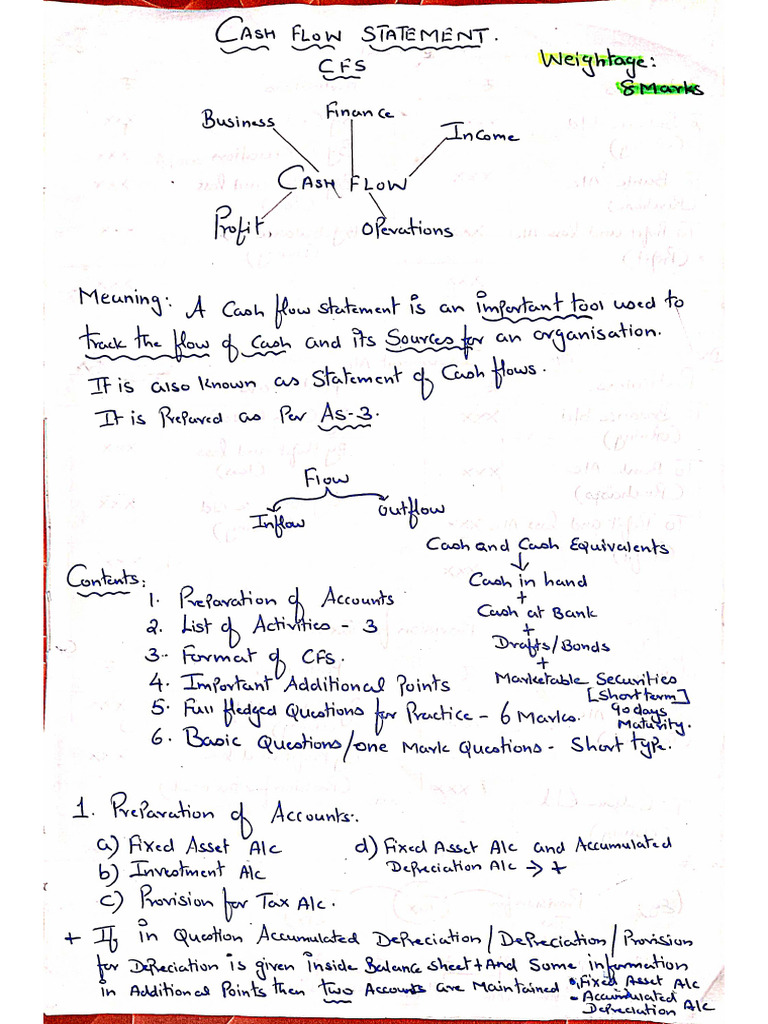 CASH FLOW STATEMENT.
CFS
Weightage:
8 Marks
Business
Finance
Income
CASH FLOW
Profit,
Operations
Meaning: A Cash flow statement is an important tool used to
track the flow of Cash and its Sources for an organisation.
It is also known as Statement of Cash flows.
It is Prepared as Per AS-3.
Flow
Inflow
Outflow
Cash and Cash Equivalents
Cash in hand
+
Cash at Bank
+
Drafts/Bonds
+
Marketable Securities
[Short term]
90 days
Maturity.
Contents:
1. Preparation of Accounts
2. List of Activities - 3
3. Format of CFS.
4. Important Additional Points
5. Full fledged Questions for Practice - 6 Marks.
6. Basic Questions/one Mark Questions - Short type.
1. Preparation of Accounts:
a) Fixed Asset A/c
b) Investment A/c
c) Provision for Tax A/c.
d) Fixed Asset A/c and Accumulated
Depreciation A/c → +
+ If in Question Accumulated Depreciation/Depreciation/Provision
for Depreciation is given inside Balance sheet + And Some information
in Additional Points then two Accounts are Maintained
• Fixed Asset A/c
- Accumulated
Depreciation A/c